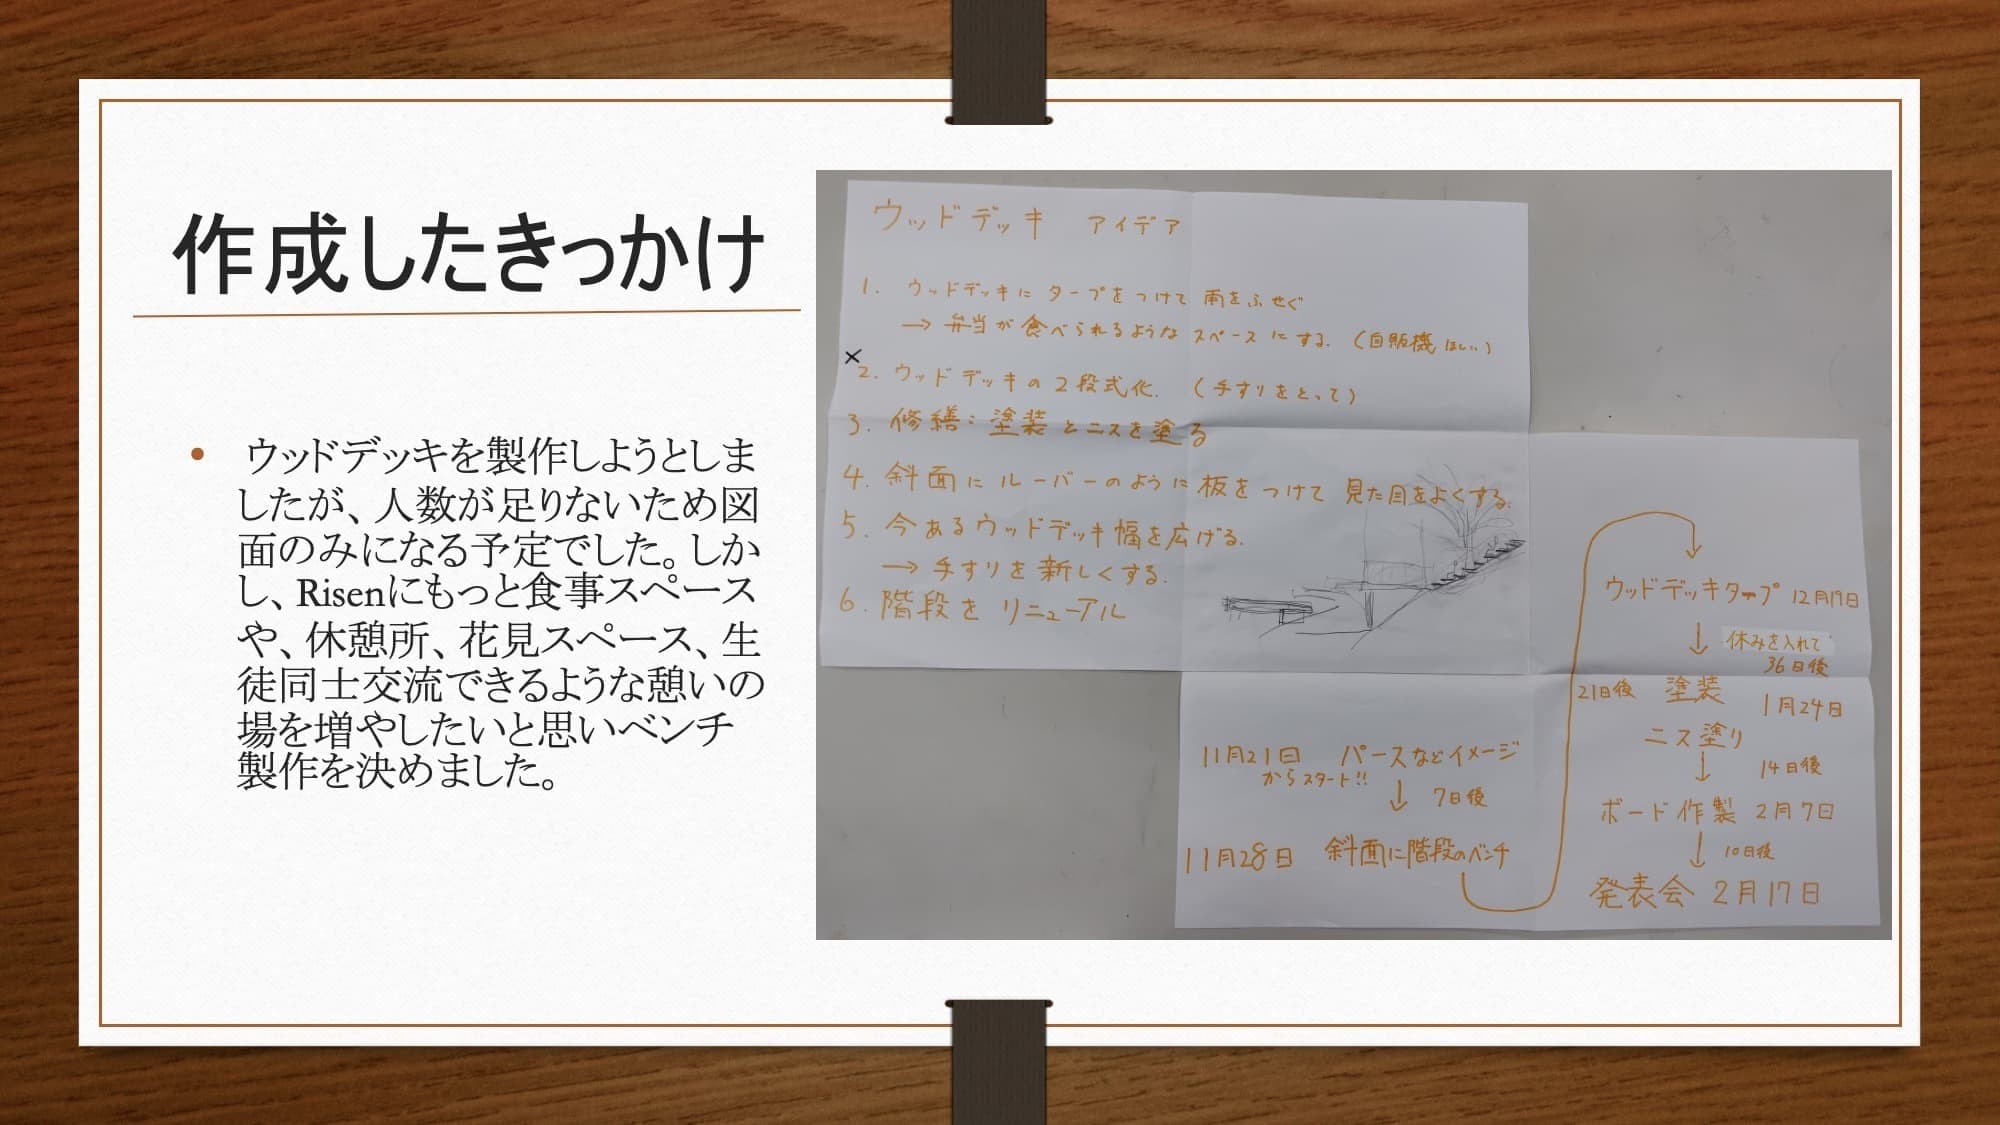 作成したきっかけ
• ウッドデッキを製作しようとしま
したが、人数が足りないため図
面のみになる予定でした。しか
し、Risenにもっと食事スペース
や、休憩所、花見スペース、生
徒同士交流できるような憩いの
場を増やしたいと思いベンチ
製作を決めました。
ウッドデッキ アイデア
1. ウッドデッキに タープをつけて 雨をふせぐ
→ 弁当が食べられるような スペースにする. (自販機 ほしい)
×
2. ウッドデッキの2段式化. (手すりをとって)
3. 修繕: 塗装とニスを塗る
4. 斜面にルーバーのように板をつけて 見た目をよくする.
5. 今あるウッドデッキ幅を広げる.
→ 手すりを新しくする.
6. 階段を リニューアル
11月21日 パースなどイメージ
からスタート!!
↓ 7日後
11月28日 斜面に階段のベンチ
ウッドデッキタープ 12月19日
↓ 休みを入れて
36日後
21日後 塗装 1月24日
ニス塗り
↓ 14日後
ボード作製 2月7日
↓ 10日後
発表会 2月17日